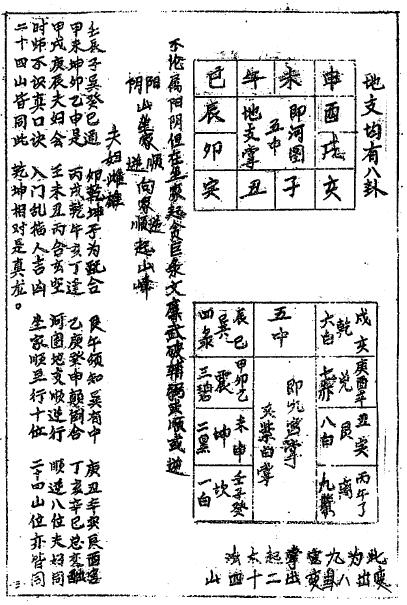 地支均有八卦
巳 午 未 申
辰 酉
卯 戌
寅 丑 子 亥
即河图
五中
地支掌
不论属阳阴但在坐家起贪巨禄文廉武破辅弼或顺或逆
阳山坐家顺 向家逆
阴 逆 顺 起山峰
夫妇雌雄
壬辰子巽癸巳通 卯乾坤子为配合 艮午须知巽有中 庚丑辛寅辰酉宫
甲未坤卯乙申是 丙戌乾午亥丁达 乙庚癸申颠倒合 丁亥辛巳总交融
甲戌庚辰夫妇会 壬未丑丙合玄空 河图地支顺逆行 顺逆八位夫妇同
时师不识真口诀 入门乱指人吉凶 坐家顺至行十位 二十四山位亦皆同
二十四山皆同此 乾坤相对是真龙。
戌亥 乾 六白
庚酉辛 兑 七赤
丑寅 艮 八白
丙午丁 离 九紫
五中
即九宫掌
又紫白掌
辰巳 巽 四绿
甲卯乙 震 三碧
未申 坤 二黑
壬子癸 坎 一白
此为九宫掌起点法
寅出八卦变出二十四山